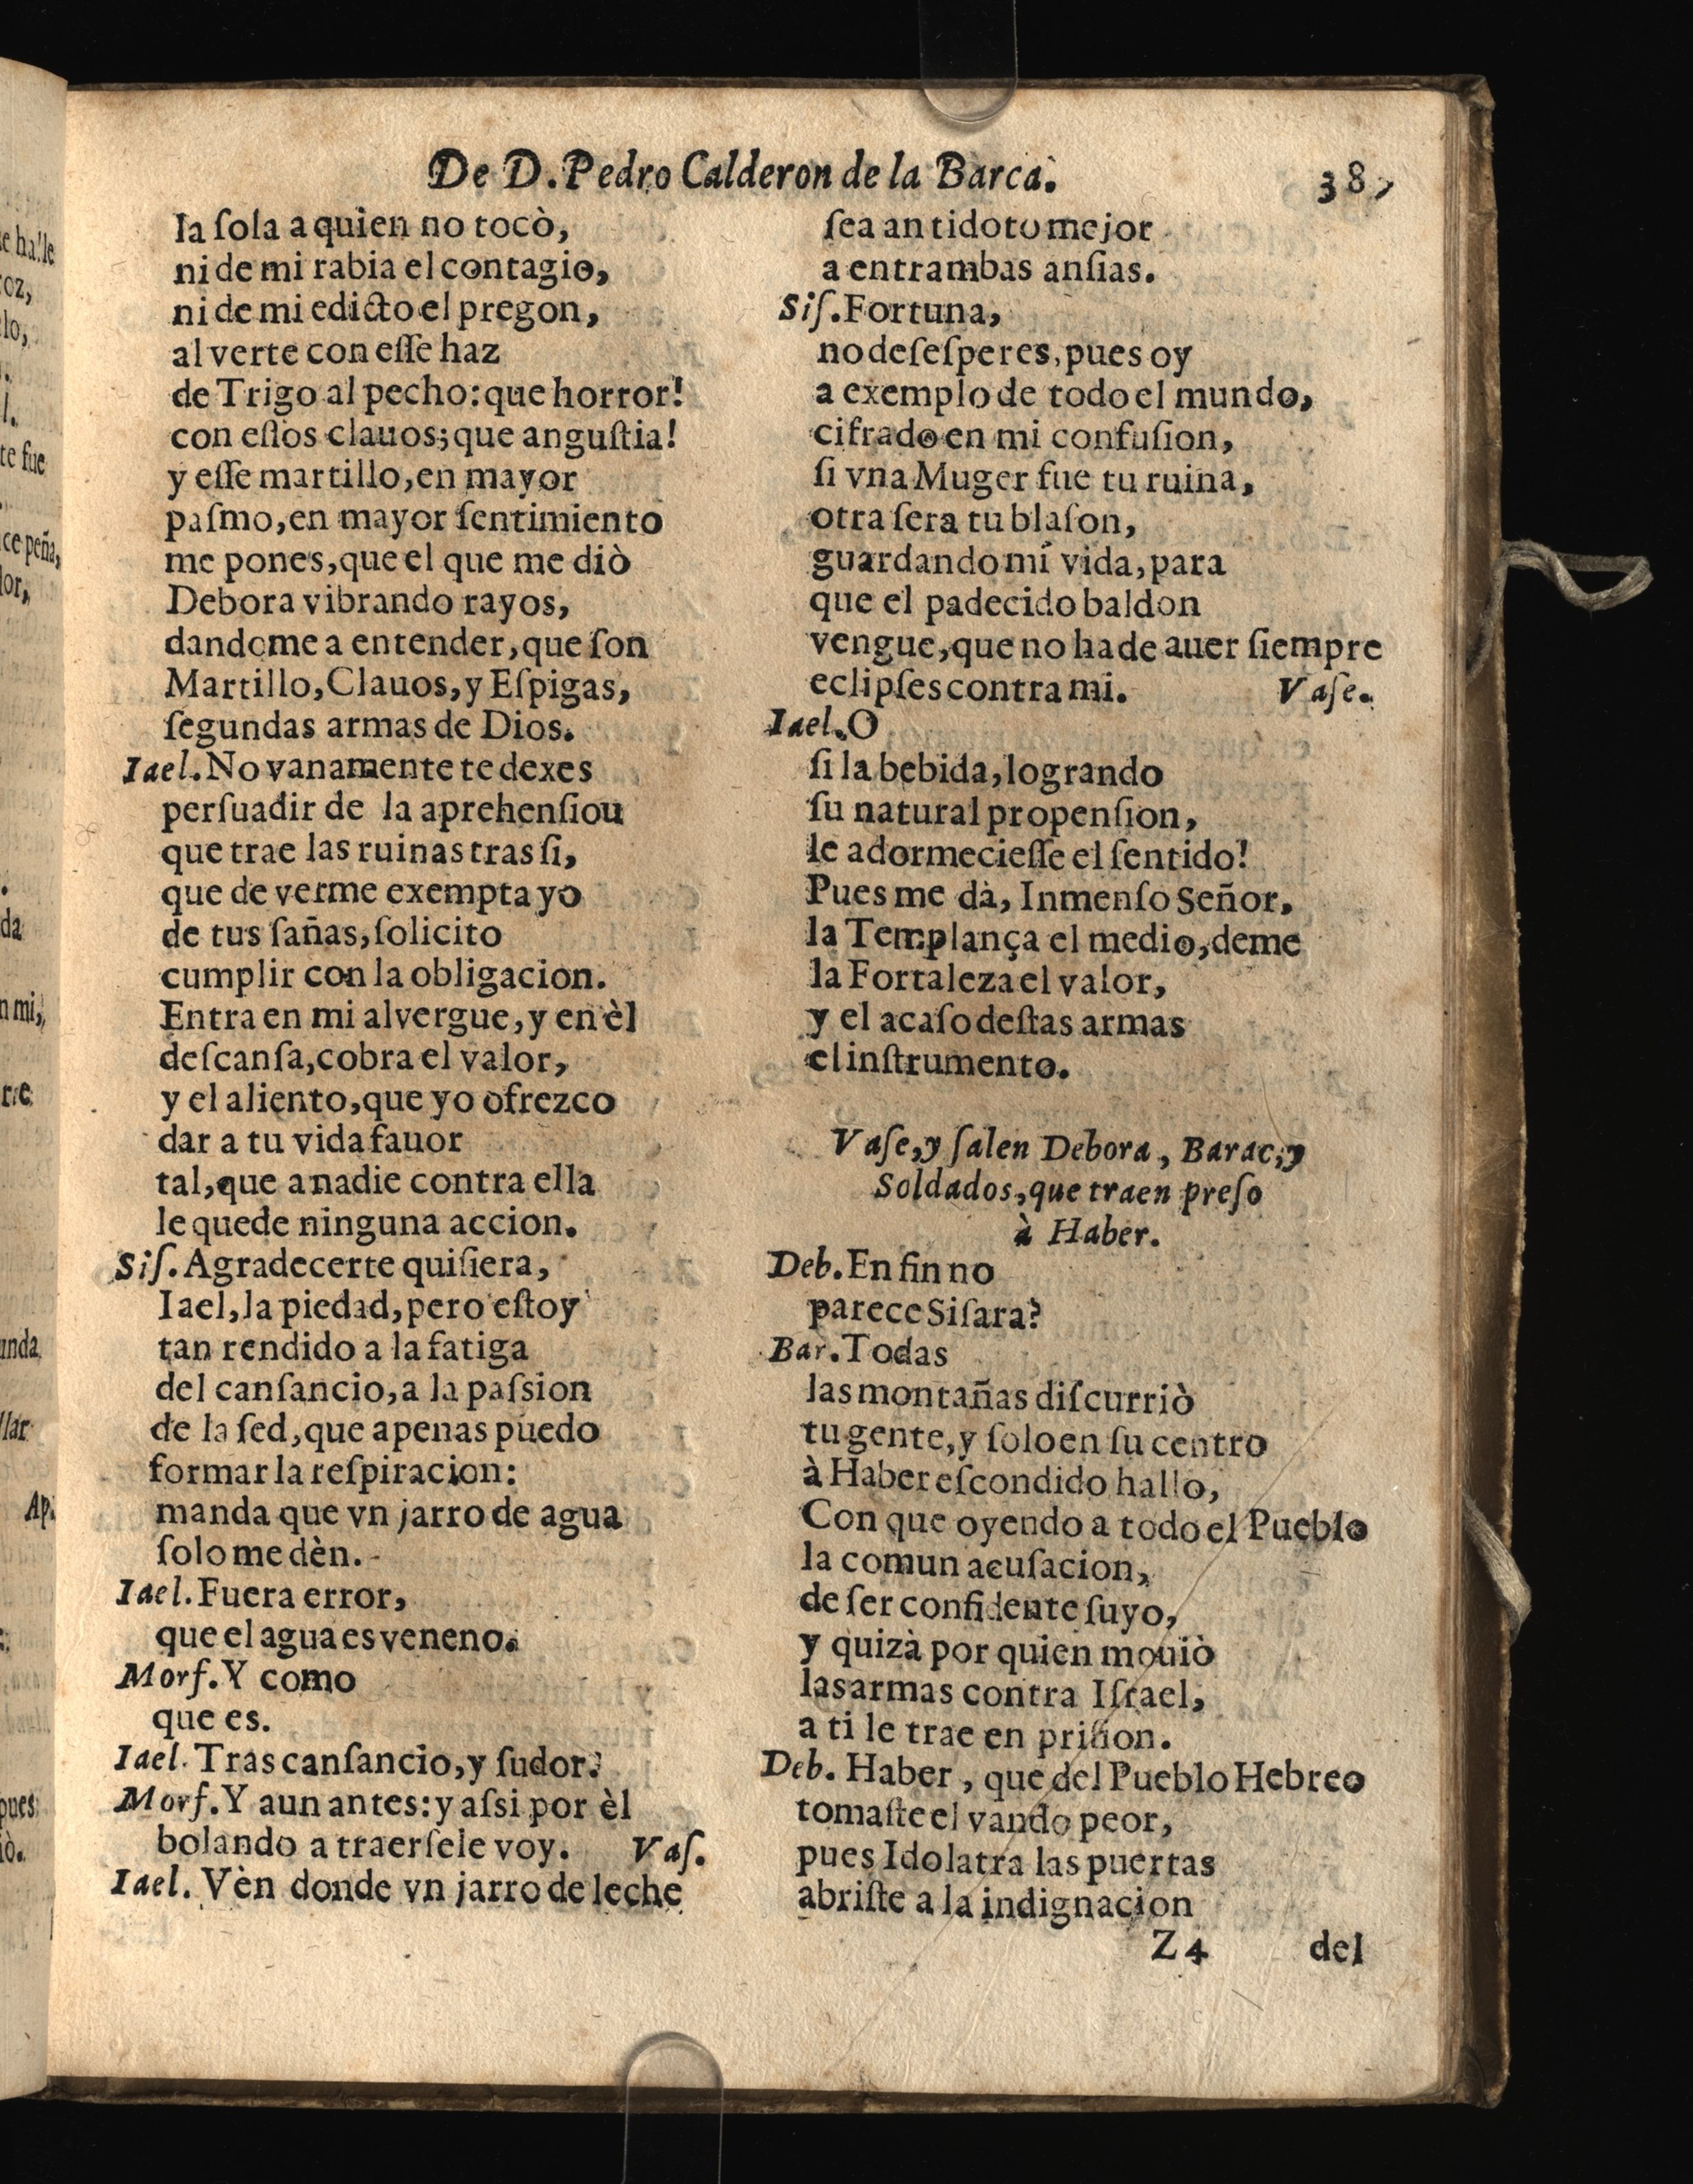 De D. Pedro Calderon de la Barca. 387
la ſola a quien no tocò,
ni de mi rabia el contagio,
ni de mi edicto el pregon,
al verte con eſſe haz
de Trigo al pecho: que horror!
con eſtos clauos; que anguſtia!
y eſſe martillo, en mayor
paſmo, en mayor ſentimiento
me pones, que el que me diò
Debora vibrando rayos,
dandome a entender, que ſon
Martillo, Clauos, y Eſpigas,
ſegundas armas de Dios.
Iael. No vanamente te dexes
perſuadir de la aprehenſiou
que trae las ruinas tras ſi,
que de verme exempta yo
de tus ſañas, ſolicito
cumplir con la obligacion.
Entra en mi alvergue, y en èl
deſcanſa, cobra el valor,
y el aliento, que yo ofrezco
dar a tu vida fauor
tal, que a nadie contra ella
le quede ninguna accion.
Siſ. Agradecerte quiſiera,
Iael, la piedad, pero eſtoy
tan rendido a la fatiga
del canſancio, a la paſsion
de la ſed, que apenas puedo
formar la reſpiracion:
manda que vn jarro de agua
ſolo me dèn.
Iael. Fuera error,
que el agua es veneno.
Morſ. Y como
que es.
Iael. Tras canſancio, y ſudor?
Morſ. Y aun antes: y aſsi por èl
bolando a traerſele voy. Vaſ.
Iael. Vèn donde vn jarro de leche
ſea antidoto mejor
a entrambas anſias.
Siſ. Fortuna,
no deſeſperes, pues oy
a exemplo de todo el mundo,
cifrado en mi confuſion,
ſi vna Muger fue tu ruina,
otra ſera tu blaſon,
guardando mi vida, para
que el padecido baldon
vengue, que no ha de auer ſiempre
eclipſes contra mi. Vaſe.
Iael. O
ſi la bebida, logrando
ſu natural propenſion,
le adormecieſſe el ſentido!
Pues me dà, Inmenſo Señor,
la Templança el medio, deme
la Fortaleza el valor,
y el acaſo deſtas armas
el inſtrumento.
Vaſe, y ſalen Debora, Barac, y
Soldados, que traen preſo
à Haber.
Deb. En fin no
parece Siſara?
Bar. Todas
las montañas diſcurriò
tu gente, y ſolo en ſu centro
à Haber eſcondido hallo,
Con que oyendo a todo el Pueblo
la comun acuſacion,
de ſer confidente ſuyo,
y quizà por quien mouiò
las armas contra Iſrael,
a ti le trae en priſion.
Deb. Haber, que del Pueblo Hebreo
tomaſte el vando peor,
pues Idolatra las puertas
abriſte a la indignacion
Z4 del